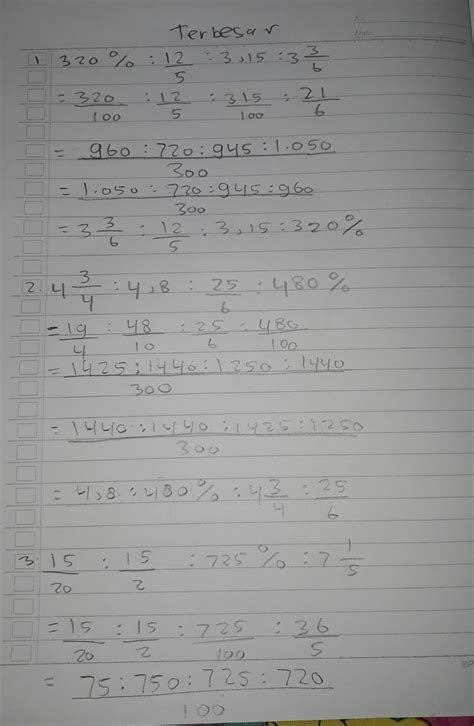 Terbesar
1 320 % : 12/5 : 3,15 : 3 3/6
= 320/100 : 12/5 : 315/100 : 21/6
= 960 : 720 : 945 : 1.050 / 300
= 1.050 : 720 : 945 : 960 / 300
= 3 3/6 : 12/5 : 3,15 : 320%
2. 4 3/4 : 4,8 : 25/6 : 480 %
= 19/4 : 48/10 : 25/6 : 480/100
= 1425 : 1440 : 1250 : 1440 / 300
= 1440 : 1440 : 1425 : 1250 / 300
= 4,8 : 480% : 4 3/4 : 25/6
3. 15/20 : 15/2 : 725 % : 7 1/5
= 15/20 : 15/2 : 725/100 : 36/5
= 75 : 750 : 725 : 720 / 100